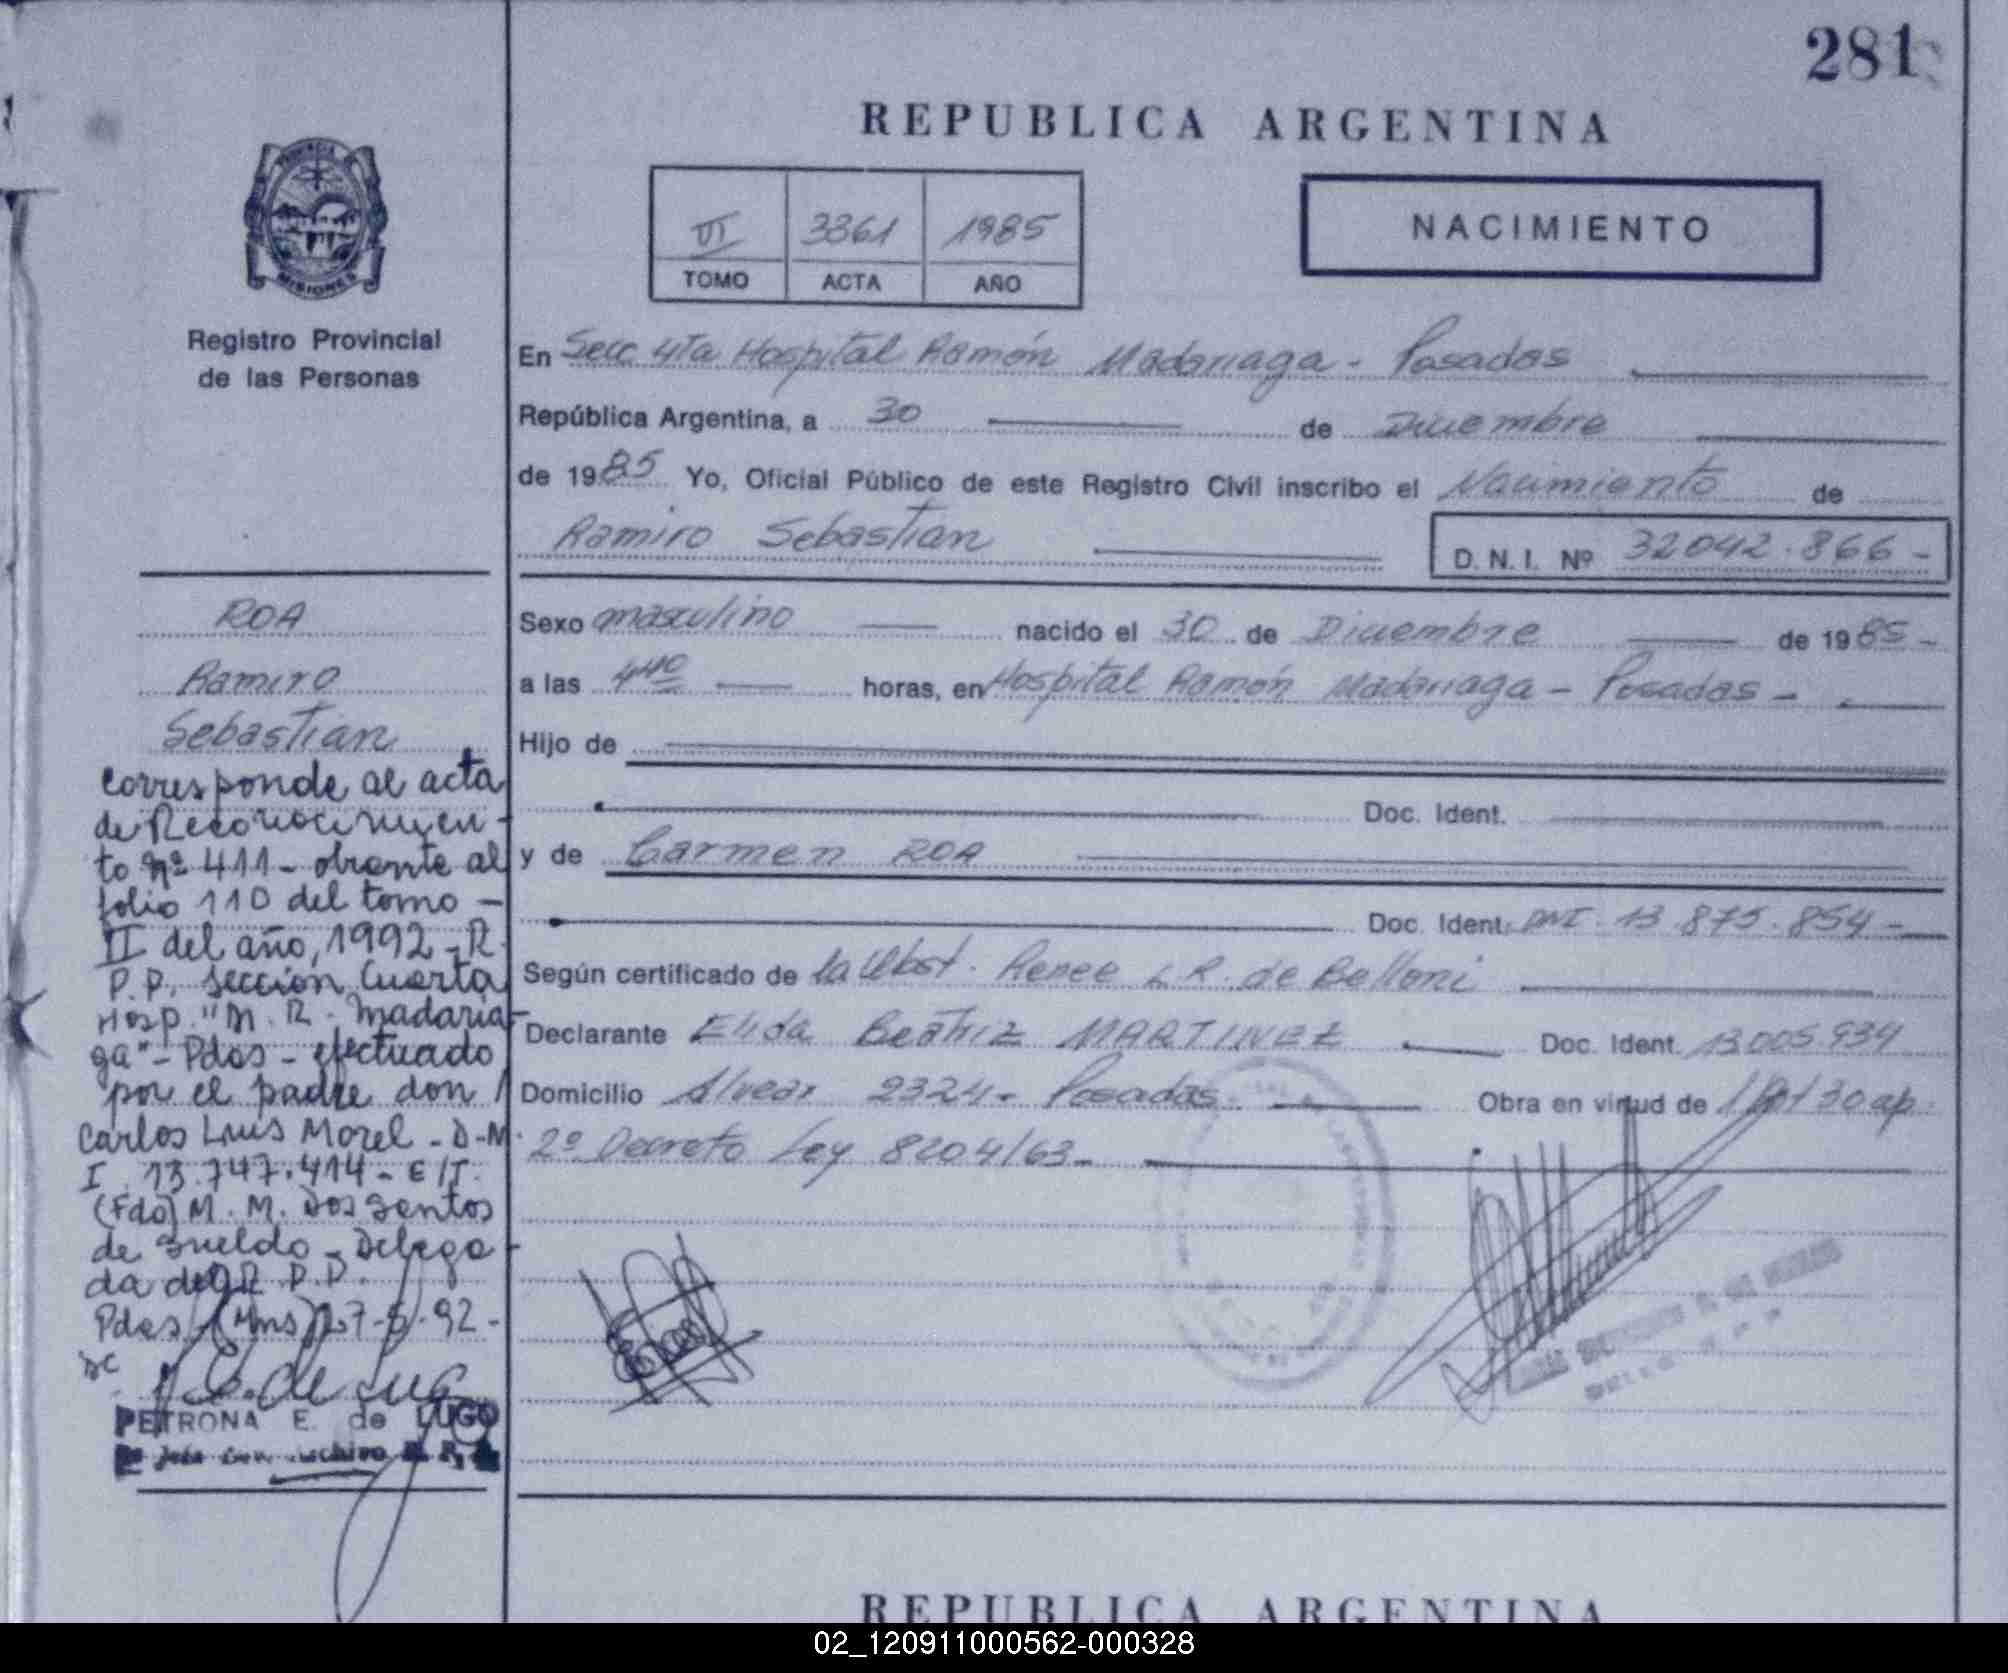 281
REPUBLICA ARGENTINA
PROVINCIA DE
MISIONES
Registro Provincial
de las Personas
VI 3361 1985
TOMO ACTA AÑO
NACIMIENTO
En Secc 4ta Hospital Ramón Madariaga - Posadas
República Argentina, a 30 de Diciembre
de 1985 Yo, Oficial Público de este Registro Civil inscribo el Nacimiento de
Ramiro Sebastian D.N.I. Nº 32042.866-
Sexo masculino nacido el 30 de Diciembre de 1985-
a las 4 40 horas, en Hospital Ramón Madariaga - Posadas -
Hijo de
Doc. Ident.
y de Carmen ROA
Doc. Ident. DNI. 13.875.854-
Según certificado de la Obst. Renee L R. de Belloni
Declarante Elida Beatriz MARTINEZ Doc. Ident. 13005934
Domicilio Alvear 2324- Posadas Obra en virtud de 30 ap
2º Decreto Ley 8204/63-
ROA
Ramiro
Sebastian
Corresponde al acta
de Reconocimien-
to Nº 411- obrante al
folio 110 del tomo -
II del año, 1992 - R.
P.P. Sección Cuarta
Hosp. "M. R. Madaria-
ga" - Pdas - efectuado
por el padre don
Carlos Luis Morel - D-N-
I. 13.747.414 - E/T.
(Fdo) M. M. Dos Santos
de Sueldo - Delega-
da del R.P.P.
Pdas (Mns) 27-5-92-
PETRONA E. de LUGO
REPUBLICA ARGENTINA
02_120911000562-000328